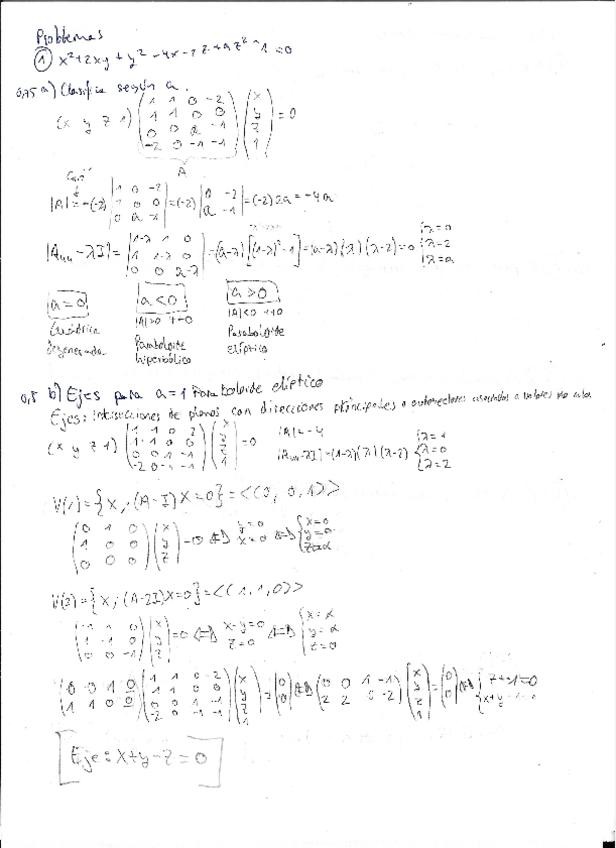 Problemas
① x²+2xy+y²-4x-2z+az²-1=0
0,75 a) Clasifica según a.
(x y z 1) (1 1 0 -2 / 1 1 0 0 / 0 0 a -1 / -2 0 -1 -1) (x / y / z / 1) = 0
A
|A| = -(-2) |1 0 -2 / 1 0 0 / 0 a -1| = (-2) |0 -2 / a -1| = (-2) 2a = -4a
|A₀₀-λI| = |1-λ 1 0 / 1 1-λ 0 / 0 0 a-λ| = (a-λ)[(1-λ)²-1] = (a-λ)(λ)(λ-2) = 0 {λ=0 / λ=2 / λ=a
a=0 a<0 a>0
|A|>0 |A|<0
Cuádrica Paraboloide Paraboloide
degenerada hiperbólico elíptico
0,5 b) Ejes para a=1 Paraboloide elíptico
Ejes: Intersecciones de planos con direcciones principales o autovectores asociados a valores no nulos
(x y z 1) (1 1 0 2 / 1 1 0 0 / 0 0 1 -1 / -2 0 -1 -1) (x / y / z / 1) = 0 |A|=-4
|A₀₀-λI| = (1-λ)(λ)(λ-2) {λ=1 / λ=0 / λ=2
V(1) = {X; (A-I)X=0} = <(0, 0, 1)>
(0 1 0 / 1 0 0 / 0 0 0) (x / y / z) = 0 ⇔ y=0 / x=0 ⇔ {x=0 / y=0 / z=α
V(2) = {X; (A-2I)X=0} = <(1, 1, 0)>
(-1 1 0 / 1 -1 0 / 0 0 -1) (x / y / z) = 0 ⇔ x-y=0 / z=0 ⇔ {x=α / y=α / z=0
(0 0 1 0 / 1 1 0 0) (1 1 0 -2 / 1 1 0 0 / 0 0 1 -1 / -2 0 -1 -1) (x / y / z / 1) = (0 / 0) ⇔ (0 0 1 -1 / 2 2 0 -2) (x / y / z / 1) = (0 / 0) ⇔ {z+1=0 / x+y-1=0
[Eje: x+y-z=0]